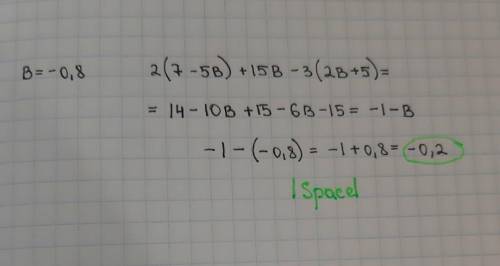 B=-0,8
2(7-5B)+15B-3(2B+5)=
=14-10B+15-6B-15=-1-B
-1-(-0,8)=-1+0,8=-0,2
|Space|